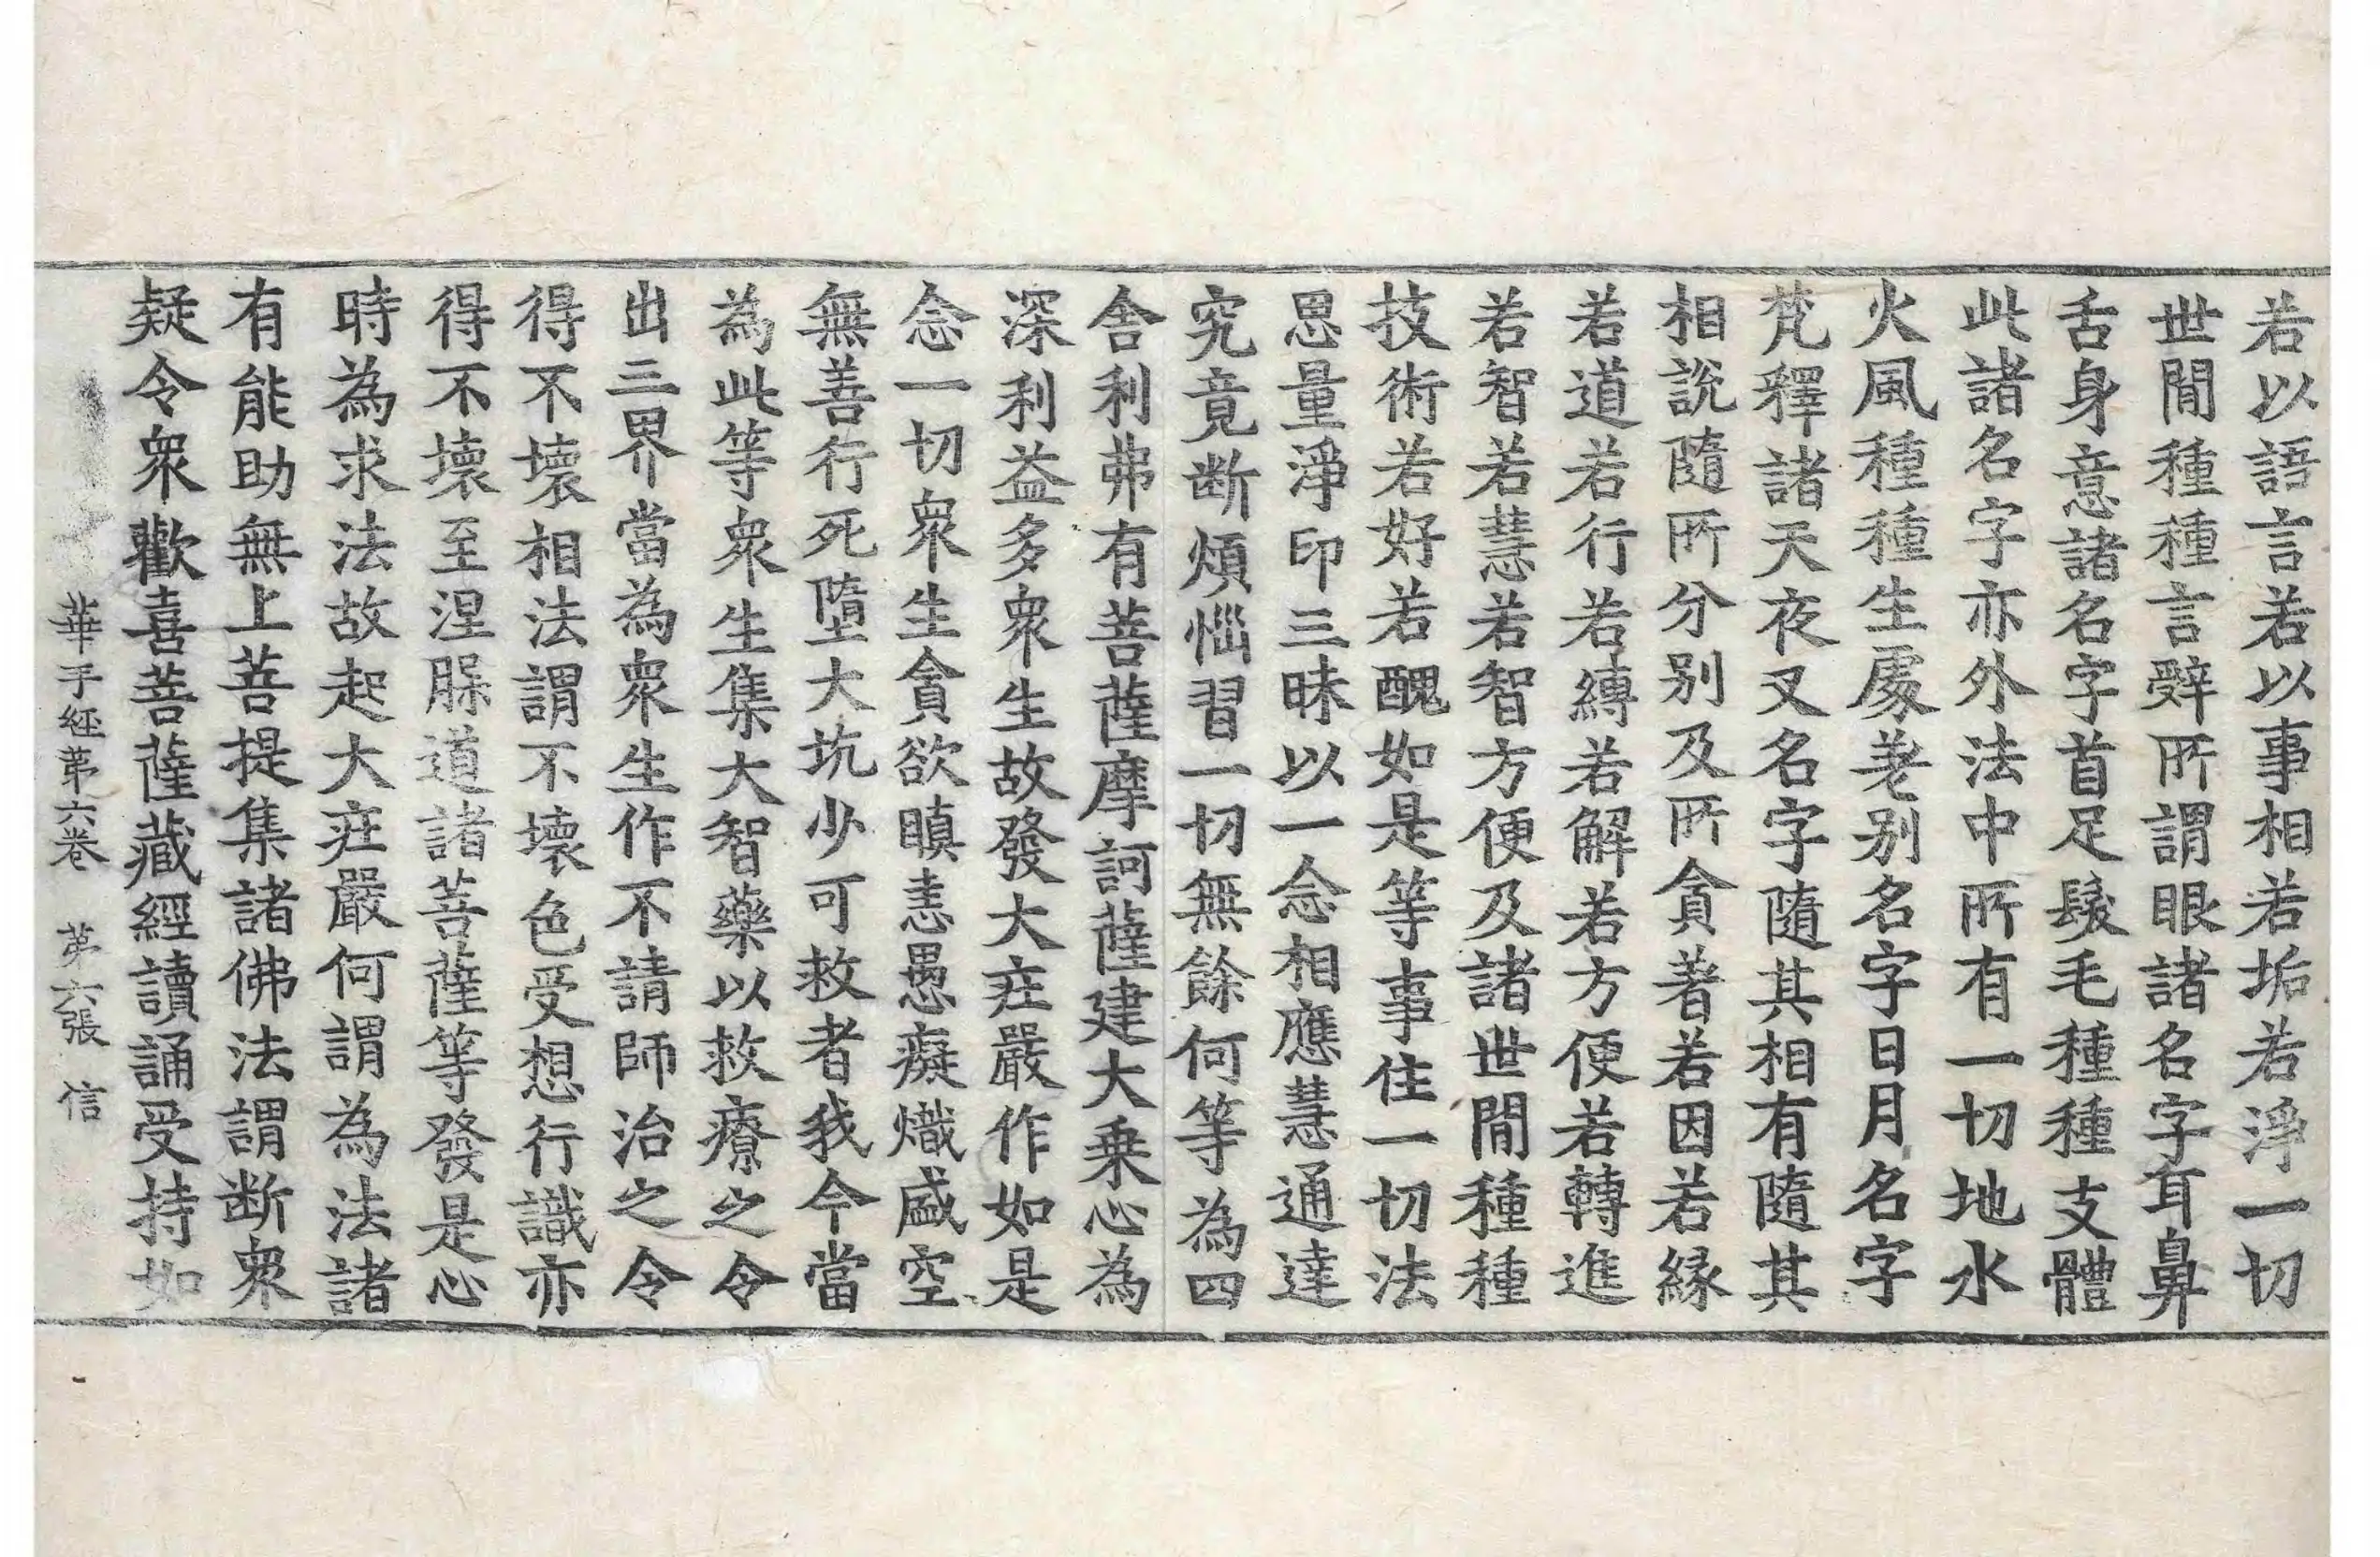 若以語言若以事相若垢若淨一切
世間種種言辭所謂眼諸名字耳鼻
舌身意諸名字首足髮毛種種支體
此諸名字亦外法中所有一切地水
火風種種生處差別名字日月名字
梵釋諸天夜叉名字隨其相有隨其
相說隨所分別及所貪著若因若緣
若道若行若縛若解若方便若轉進
若智若慧若智方便及諸世間種種
技術若好若醜如是等事住一切法
思量淨印三昧以一念相應慧通達
究竟断煩惱習一切無餘何等為四
舍利弗有菩薩摩訶薩建大乗心為
深利益多衆生故發大莊嚴作如是
念一切衆生貪欲瞋恚愚癡熾盛空
無善行死墮大坑少可救者我今當
為此等衆生集大智藥以救療之令
出三界當為衆生作不請師治之令
得不壞相法謂不壞色受想行識亦
得不壞至涅槃道諸菩薩等發是心
時為求法故起大莊嚴何謂為法諸
有能助無上菩提集諸佛法謂断衆
疑令衆歡喜菩薩藏經讀誦受持如
華手經第六卷 第六張 信